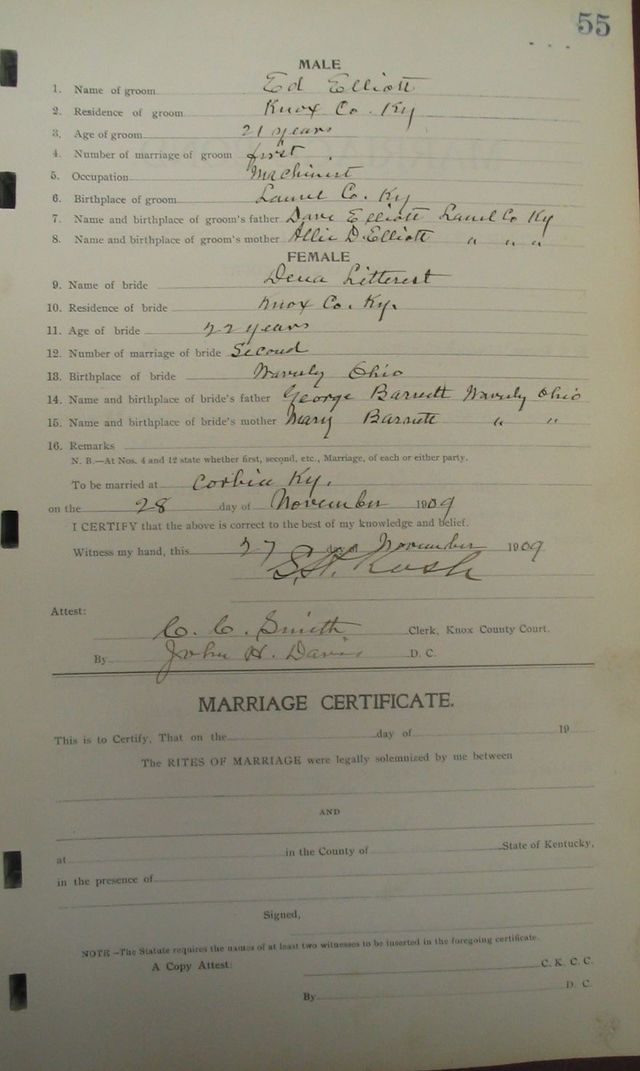 55
MALE
1. Name of groom Ed Elliott
2. Residence of groom Knox Co. Ky
3. Age of groom 21 years
4. Number of marriage of groom first
5. Occupation Machinest
6. Birthplace of groom Laurel Co. Ky
7. Name and birthplace of groom's father Dave Elliott Laurel Co Ky
8. Name and birthplace of groom's mother Allie D. Elliott " " "
FEMALE
9. Name of bride Dena Litterest
10. Residence of bride Knox Co. Ky.
11. Age of bride 22 years
12. Number of marriage of bride Second
13. Birthplace of bride Waverly Ohio
14. Name and birthplace of bride's father George Barnett Waverly Ohio
15. Name and birthplace of bride's mother Mary Barnett " "
16. Remarks
N. B.—At Nos. 4 and 12 state whether first, second, etc., Marriage, of each or either party.
To be married at Corbin Ky.
on the 28 day of November 1909
I CERTIFY that the above is correct to the best of my knowledge and belief.
Witness my hand, this 27 November 1909
S. H. Rush
Attest:
C. C. Smith Clerk, Knox County Court.
By John H. Davis D. C.
MARRIAGE CERTIFICATE.
This is to Certify, That on the day of 19
The RITES OF MARRIAGE were legally solemnized by me between
AND
at in the County of State of Kentucky,
in the presence of
Signed,
NOTE—The Statute requires the names of at least two witnesses to be inserted in the foregoing certificate.
A Copy Attest: C. K. C. C.
By D. C.